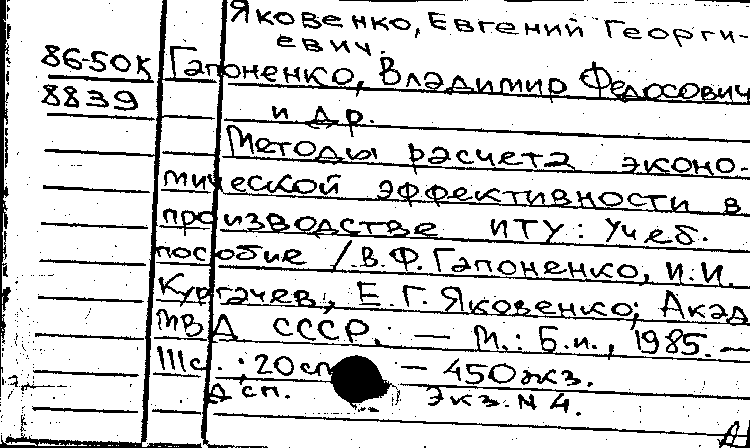 Яковенко, Евгений Георги-
евич.
86-50к Гапоненко, Владимир Федосович
8839 и др.
Методы расчета эконо-
мической эффективности в
производстве ИТУ: Учеб.
пособие /В.Ф. Гапоненко, И.И.
Кургачев, Е.Г. Яковенко; Акад
МВД СССР. — М.: Б.и., 1985. —
111с. ; 20см — 450экз.
Дсп. Экз. N 4.